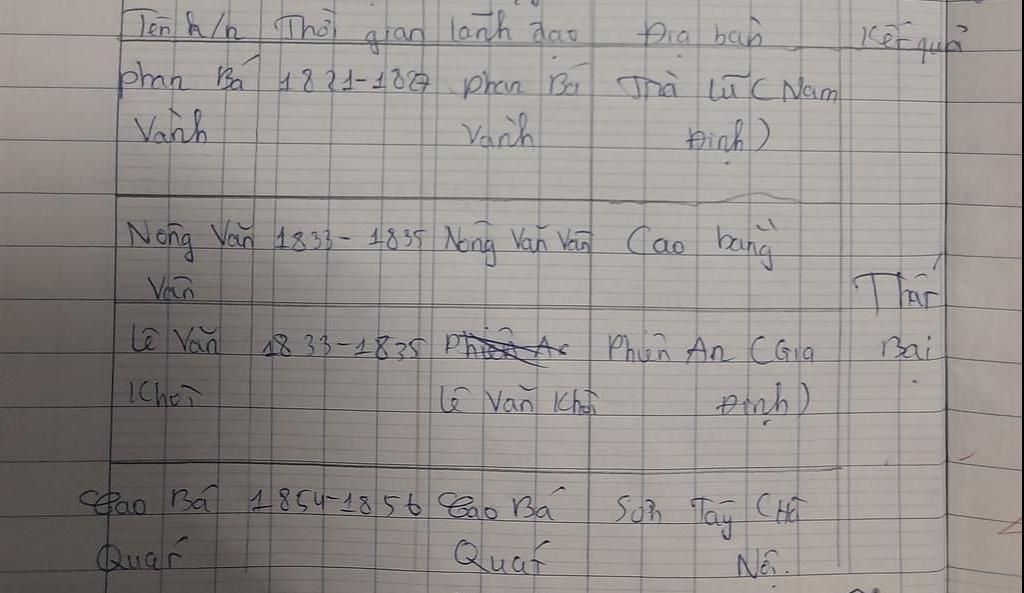 Tên k/n Thời gian lãnh đạo Địa bàn Kết quả
Phan Bá 1821-1827 Phan Bá Trà Lũ (Nam
Vành Vành Định)
Nông Văn 1833-1835 Nông Văn Vân Cao bằng
Vân Thất
Lê Văn 1833-1835 Phiên An (Gia Bại
Khôi Lê Văn Khôi Định)
Cao Bá 1854-1856 Cao Bá Sơn Tây (Hà
Quát Quát Nội.